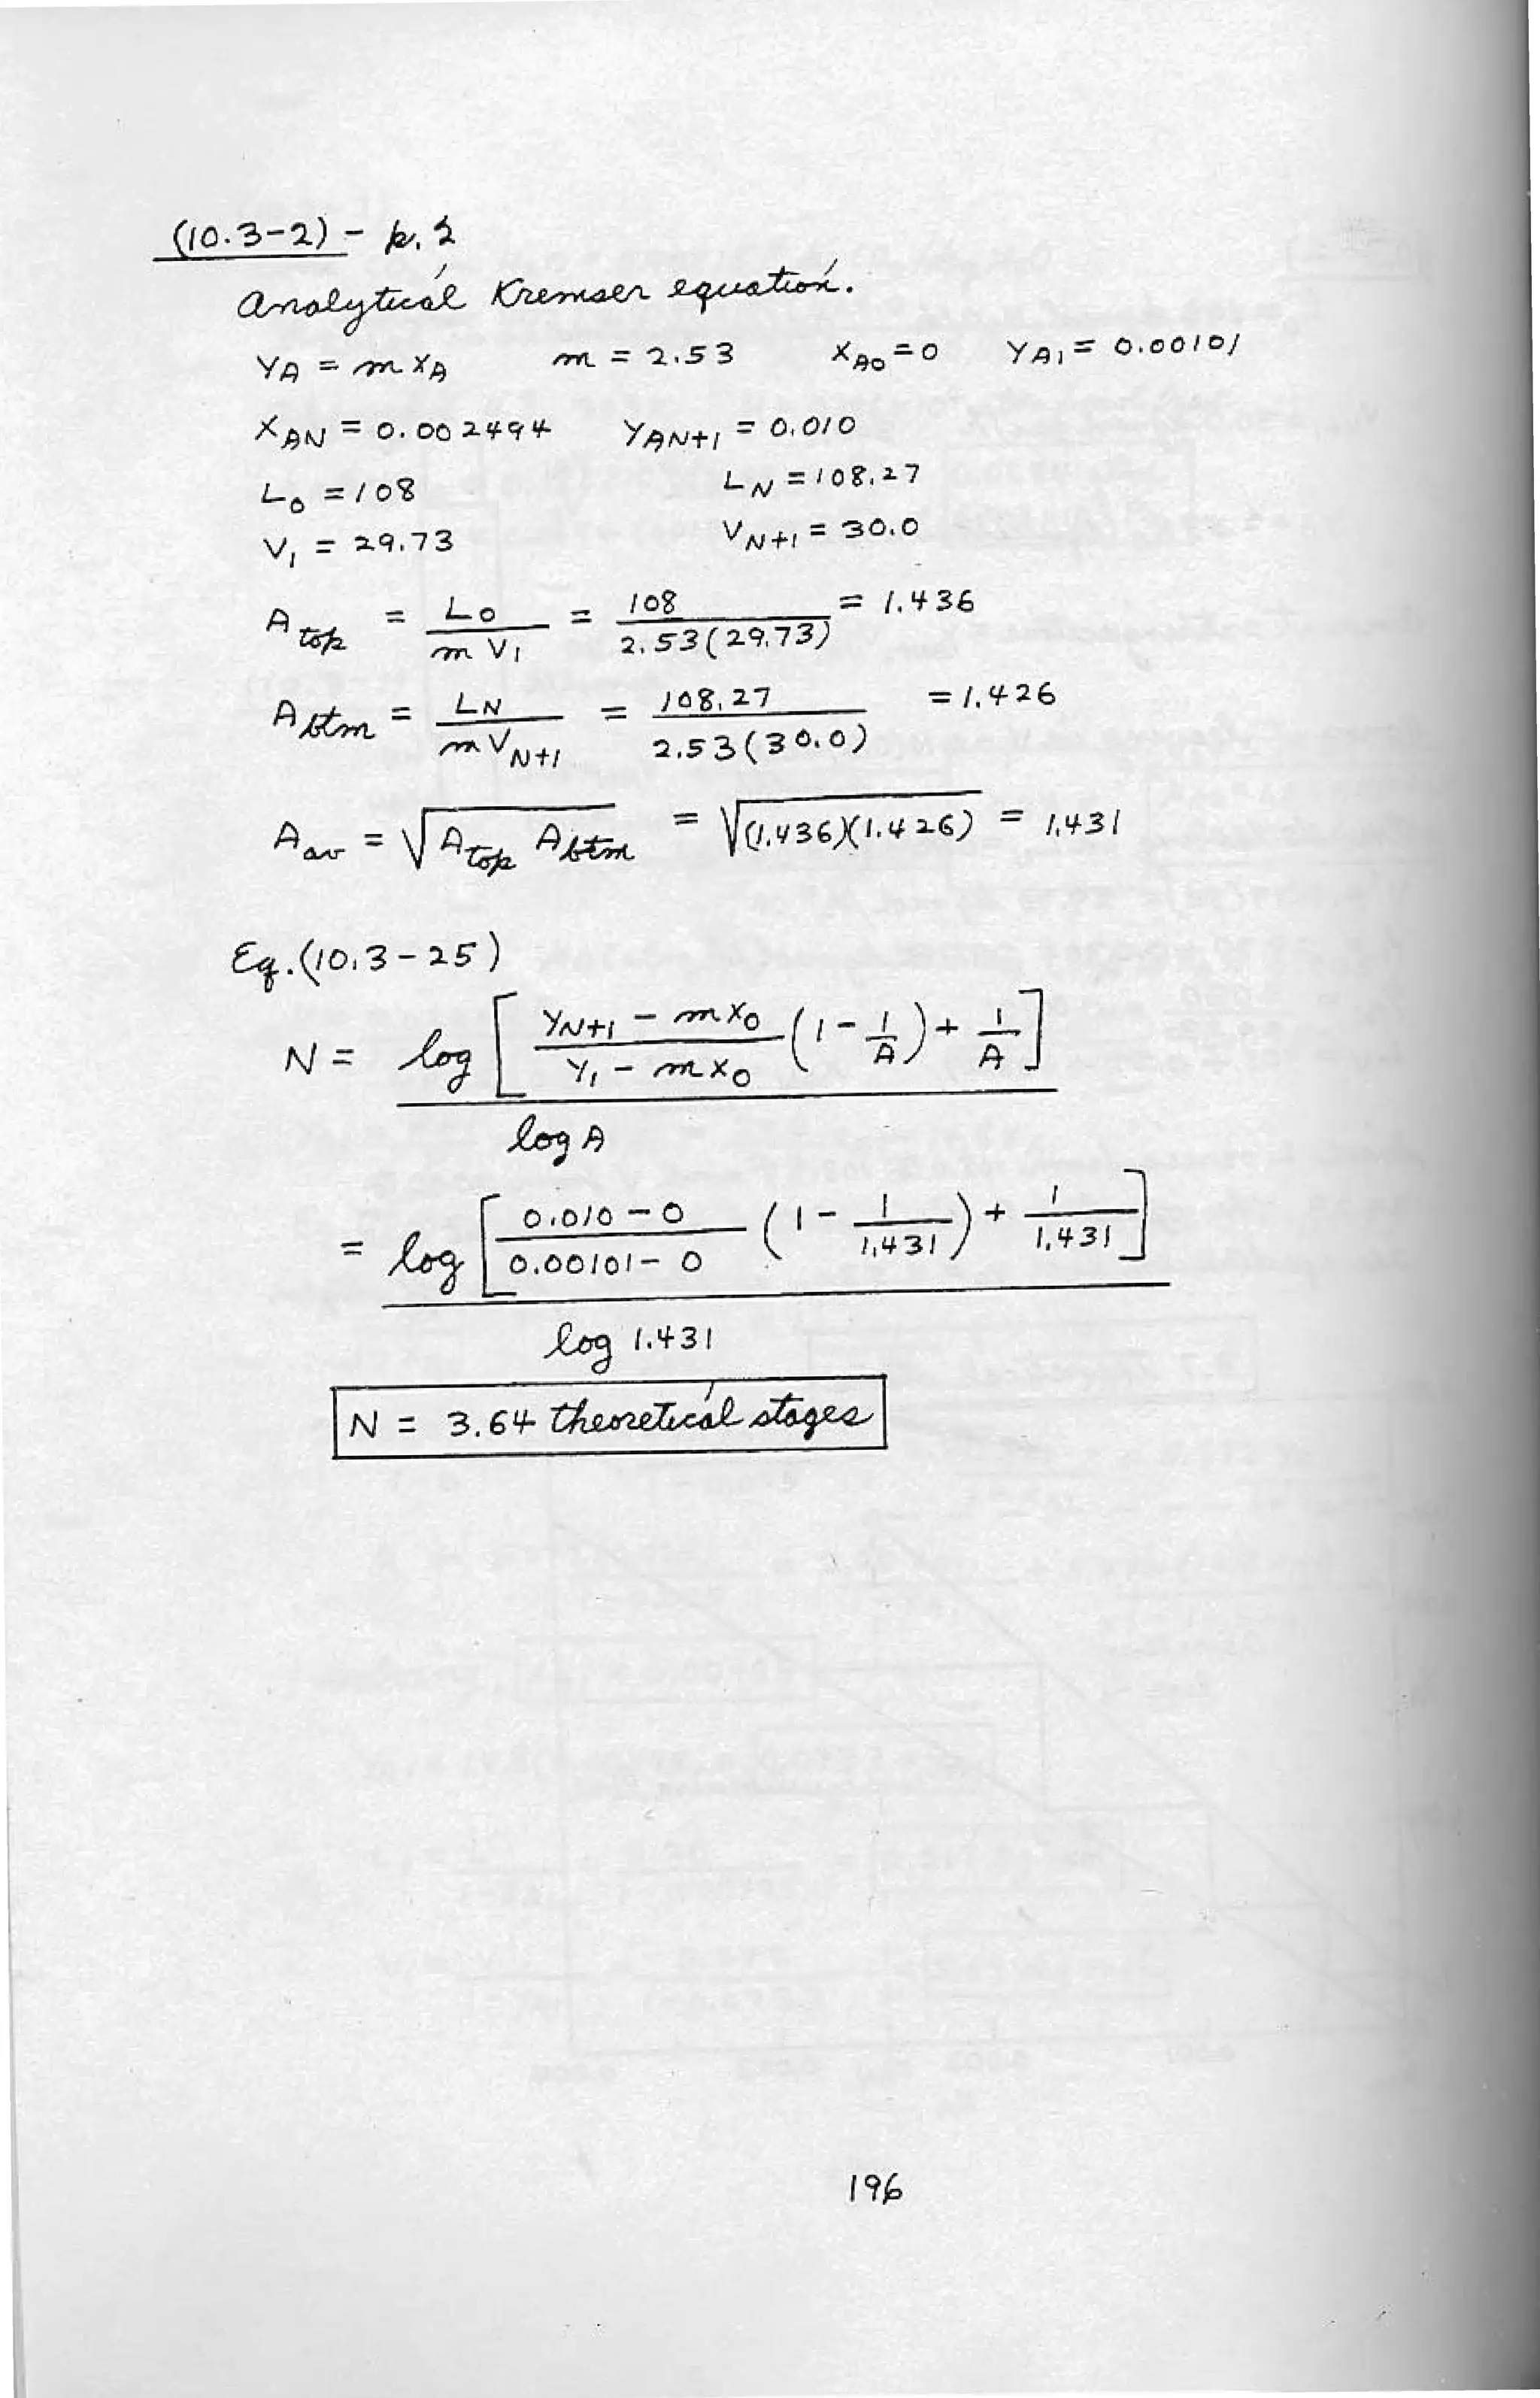 (10.3-2) - p. 2
Analytical Kremser equation.
yA = m xA    m = 2.53    xA0 = 0    yA1 = 0.00101
xAN = 0.002494    yAN+1 = 0.010
L0 = 108    LN = 108.27
V1 = 29.73    VN+1 = 30.0
A top = L0 / m V1 = 108 / 2.53(29.73) = 1.436
A btm = LN / m VN+1 = 108.27 / 2.53(30.0) = 1.426
A av = √(A top A btm) = √((1.436)(1.426)) = 1.431
Eq. (10.3-25)
N = log [ (yN+1 - m x0) / (y1 - m x0) (1 - 1/A) + 1/A ]
log A
= log [ (0.010 - 0) / (0.00101 - 0) (1 - 1/1.431) + 1/1.431 ]
log 1.431
N = 3.64 theoretical stages
196